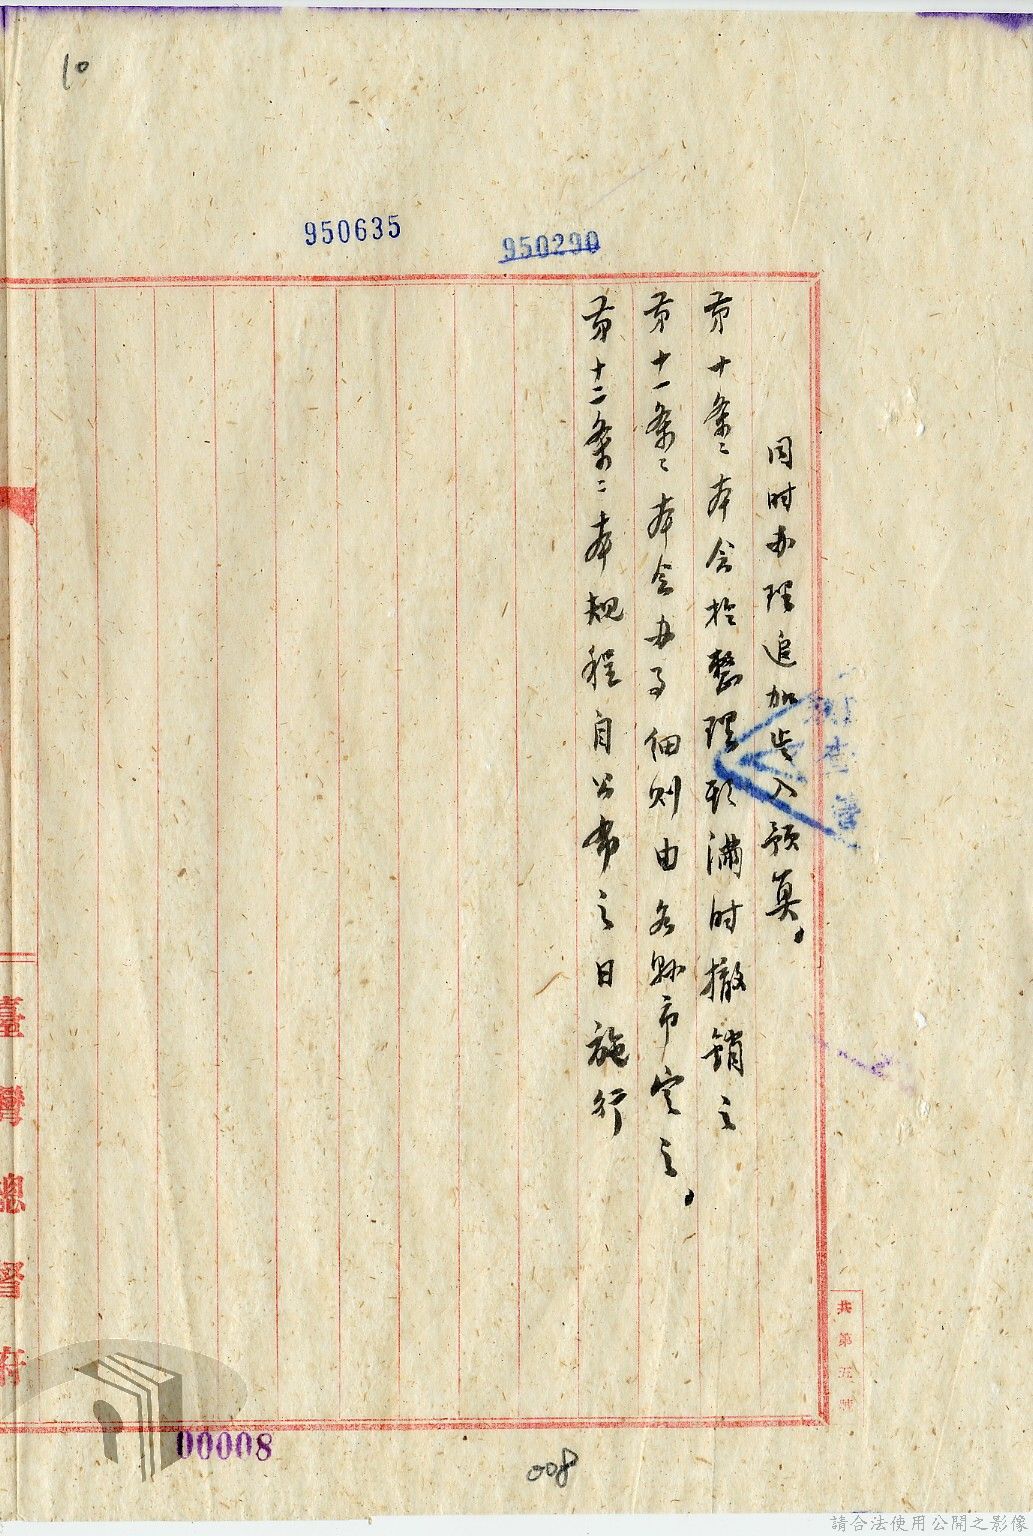 10
950635
950290
同时办理追加歲入預算。
第十条：本会於整理 满时撤銷之
第十一条：本会办事細则由各縣市定之。
第十二条：本規程自公布之日施行
臺灣總督府
共第五號
00008
008
請合法使用公開之影像